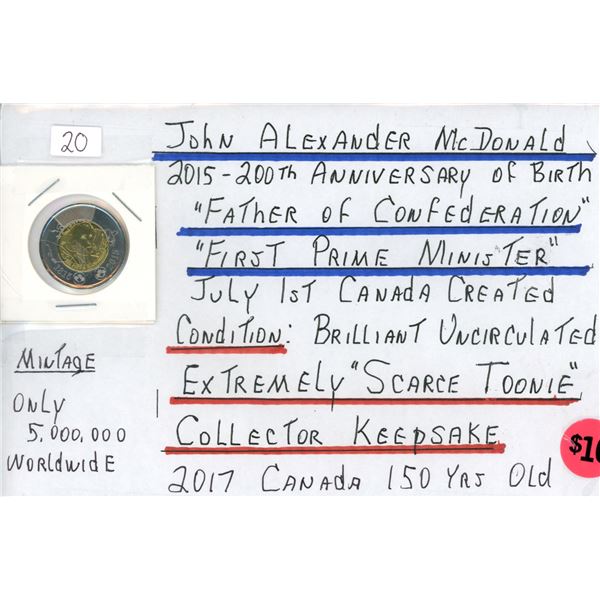 20
John Alexander McDonald
2015-200th Anniversary of Birth
"Father of Confederation"
"First Prime Minister"
July 1st Canada Created
Condition: Brilliant Uncirculated
Extremely "Scarce Toonie"
Collector Keepsake
2017 Canada 150 Yrs Old
Mintage
Only
5,000,000
Worldwide